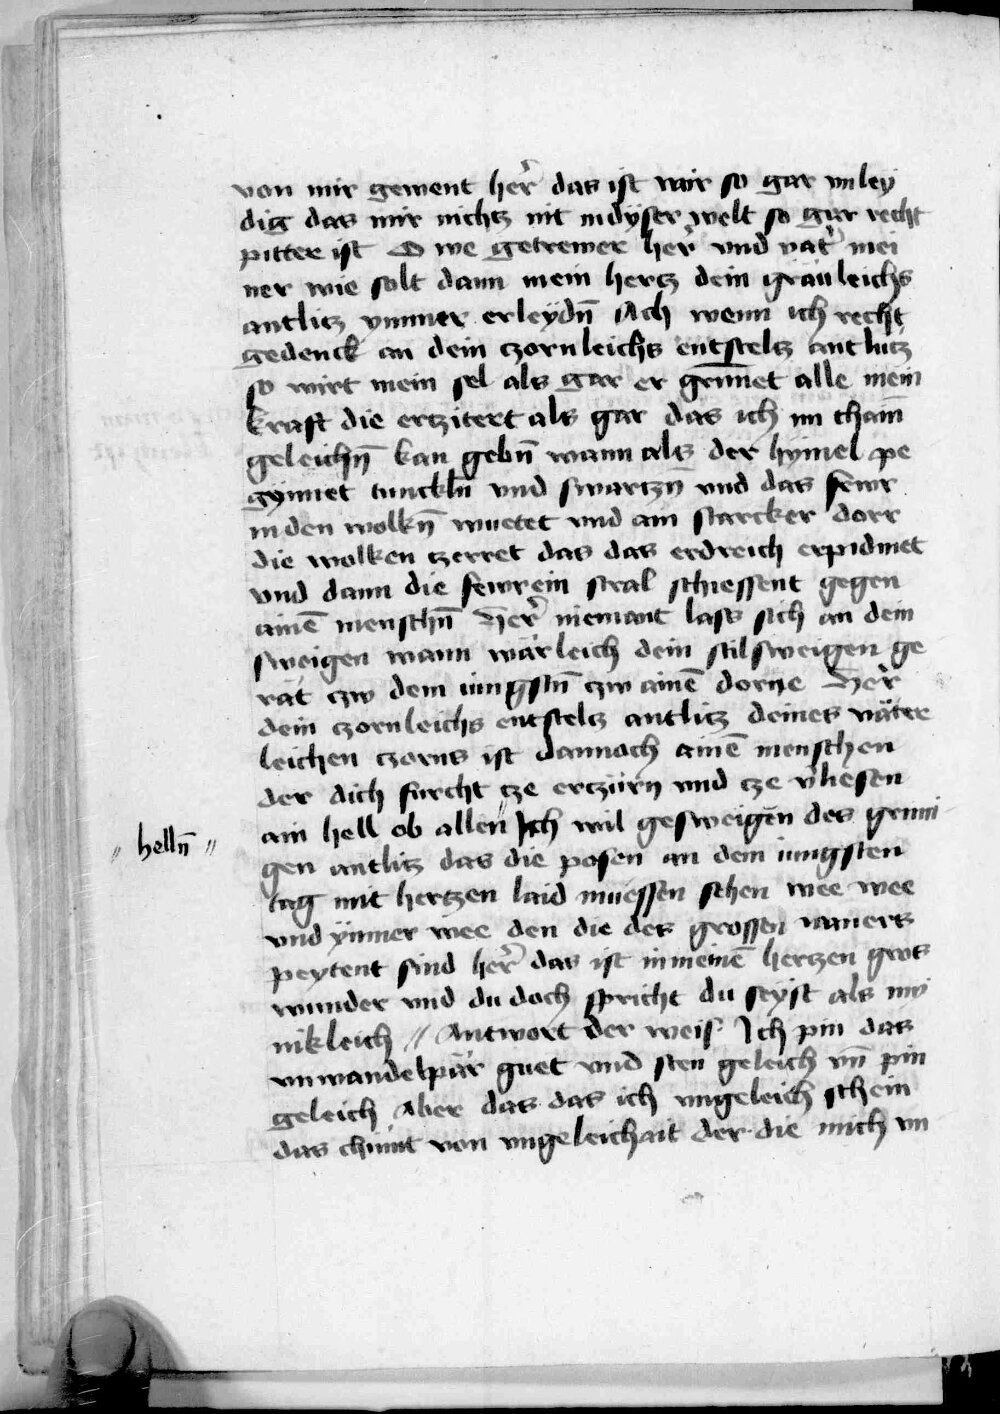 von mir gewent her̄ das ist mir so gar vnley
dig das mir nichtz nit in dyser welt so gar recht
pitter ist O we getrewer her̄ vnd vat̄ mei
ner wie solt dann mein hertz dein gräuleichs
antlitz ymmer erleydn̄ Ach wenn ich recht
gedenck an dein czornleichs entstelts antlitz
so wirt mein sel als gar er grimmet alle mein
kraft die erczitert als gar das ich im chain
geleichn̄ kan gebn̄ wann als der hymel pe
gynnet tunckln̄ vnd swartzn̄ vnd das fewr
in den wolkn̄ wuetet vnd ain starcker dorr
die wolken czerret das das erdreich erpidmet
vnd dann die fewrein stral schiessent gegen
ainē menschn̄ Her̄ niemant lass sich an dein
sweigen wann wärleich dein stilsweigen ge
rät czw dem iungstn̄ czw ainē dorne Her̄
dein czornleichs entstelts antlitz deines väter
leichen czorns ist dannoch ainē menschen
der dich furcht cze erczürn vnd cze v̄liesen
ain hell ob allen // Ich wil gesweigen des grimi
// helln̄ //
gen antlitz das die posen an dem iungsten
tag mit hertzen laid müessen sehen wee wee
vnd ymmer wee den die des grossen iamers
peytent sind her̄ das ist in meinē hertzen gros
wunder vnd du doch spricht du seyst als mÿ
nikleich // Antwort der weis Ich pin das
vnwandelpär guet vnd sten geleich vn̄ pin
geleich Aber das das ich vngeleich schein
das chumt von vngeleichait der die mich vn